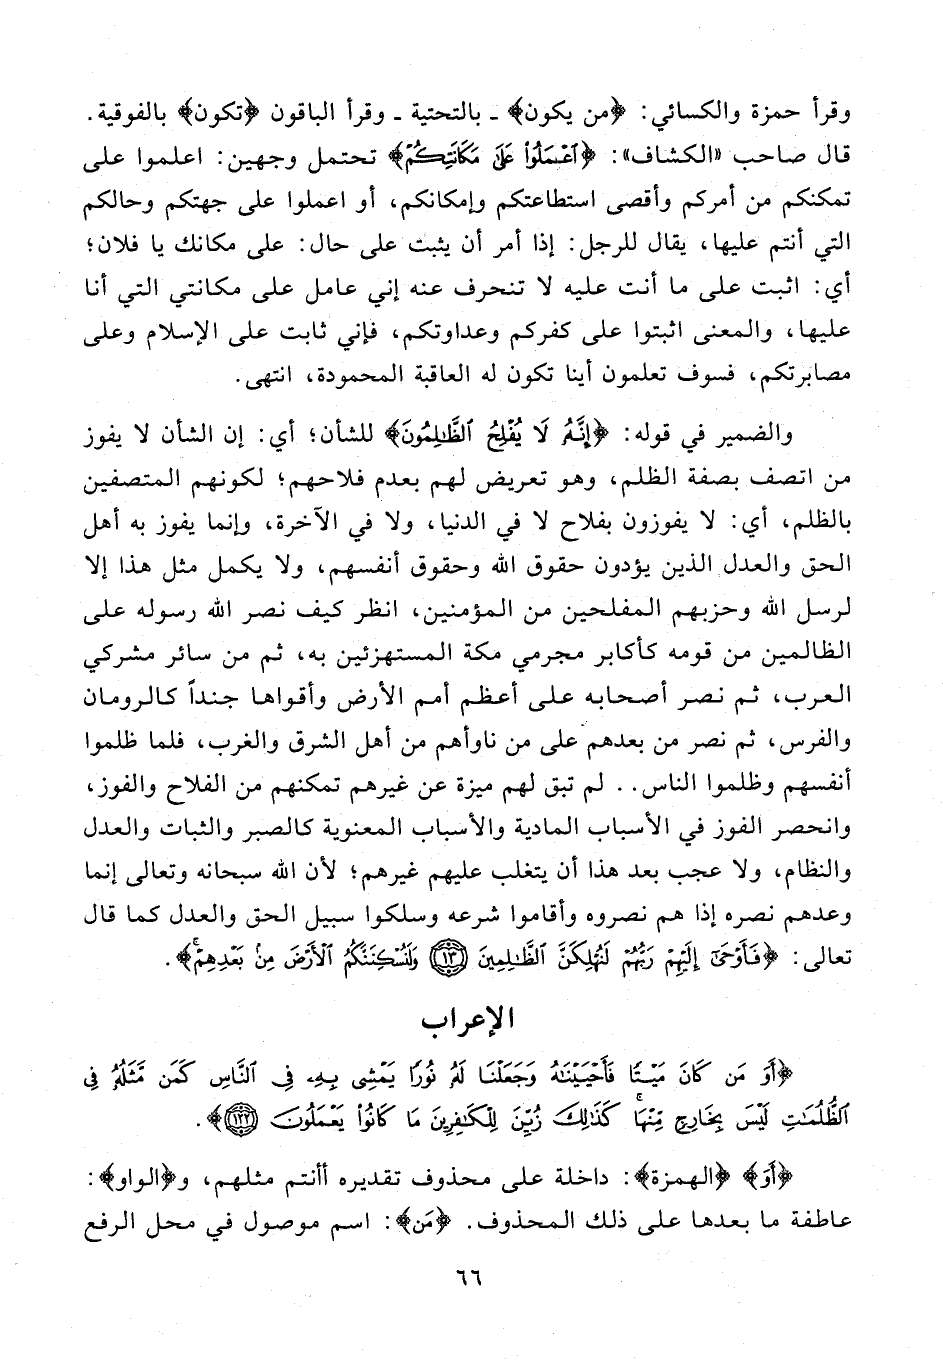 وقرأ حمزة والكسائي: ﴿من يكون﴾ ـ بالتحتية ـ وقرأ الباقون ﴿تكون﴾ بالفوقية.
قال صاحب «الكشاف»: ﴿ٱعْمَلُوا۟ عَلَىٰ مَكَانَتِكُمْ﴾ تحتمل وجهين: اعلموا على
تمكنكم من أمركم وأقصى استطاعتكم وإمكانكم، أو اعملوا على جهتكم وحالكم
التي أنتم عليها، يقال للرجل: إذا أمر أن يثبت على حال: على مكانك يا فلان؛
أي: اثبت على ما أنت عليه لا تنحرف عنه إني عامل على مكانتي التي أنا
عليها، والمعنى اثبتوا على كفركم وعداوتكم، فإني ثابت على الإسلام وعلى
مصابرتكم، فسوف تعلمون أينا تكون له العاقبة المحمودة، انتهى.
والضمير في قوله: ﴿إِنَّهُۥ لَا يُفْلِحُ ٱلظَّـٰلِمُونَ﴾ للشأن؛ أي: إن الشأن لا يفوز
من اتصف بصفة الظلم، وهو تعريض لهم بعدم فلاحهم؛ لكونهم المتصفين
بالظلم، أي: لا يفوزون بفلاح لا في الدنيا، ولا في الآخرة، وإنما يفوز به أهل
الحق والعدل الذين يؤدون حقوق الله وحقوق أنفسهم، ولا يكمل مثل هذا إلا
لرسل الله وحزبهم المفلحين من المؤمنين، انظر كيف نصر الله رسوله على
الظالمين من قومه كأكابر مجرمي مكة المستهزئين به، ثم من سائر مشركي
العرب، ثم نصر أصحابه على أعظم أمم الأرض وأقواها جنداً كالرومان
والفرس، ثم نصر من بعدهم على من ناوأهم من أهل الشرق والغرب، فلما ظلموا
أنفسهم وظلموا الناس.. لم تبق لهم ميزة عن غيرهم تمكنهم من الفلاح والفوز،
وانحصر الفوز في الأسباب المادية والأسباب المعنوية كالصبر والثبات والعدل
والنظام، ولا عجب بعد هذا أن يتغلب عليهم غيرهم؛ لأن الله سبحانه وتعالى إنما
وعدهم نصره إذا هم نصروه وأقاموا شرعه وسلكوا سبيل الحق والعدل كما قال
تعالى: ﴿فَأَوْحَىٰٓ إِلَيْهِمْ رَبُّهُمْ لَنُهْلِكَنَّ ٱلظَّـٰلِمِينَ ١٣ وَلَنُسْكِنَنَّكُمُ ٱلْأَرْضَ مِنۢ بَعْدِهِمْ ۚ﴾.
الإعراب
﴿أَوَ مَن كَانَ مَيْتًا فَأَحْيَيْنَـٰهُ وَجَعَلْنَا لَهُۥ نُورًا يَمْشِى بِهِۦ فِى ٱلنَّاسِ كَمَن مَّثَلُهُۥ فِى
ٱلظُّلُمَـٰتِ لَيْسَ بِخَارِجٍ مِّنْهَا ۚ كَذَٰلِكَ زُيِّنَ لِلْكَـٰفِرِينَ مَا كَانُوا۟ يَعْمَلُونَ ١٢٢﴾.
﴿أَوَ﴾ ﴿الهمزة﴾: داخلة على محذوف تقديره أأنتم مثلهم، و﴿الواو﴾:
عاطفة ما بعدها على ذلك المحذوف. ﴿مَن﴾: اسم موصول في محل الرفع
٦٦